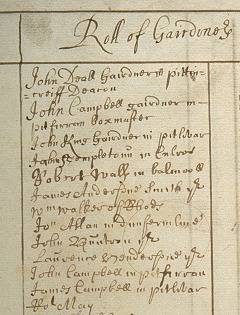 Roll of Gairdners
John Deall Gairdner in pitten-
creiff Deacon
John Campbell gairdner in
pitfirran boxmaster
John King Gairdner in pitlivar
John Stempletoun in Culros
Robert Walls in balmooll
James Andersone Smith yr
Wm walker of Rhods
Jon Allan in dunfermline
John yr
Laurence Hendersone yr
John Campbell in pitfirran
James Campbell in pitlivar
Rot May